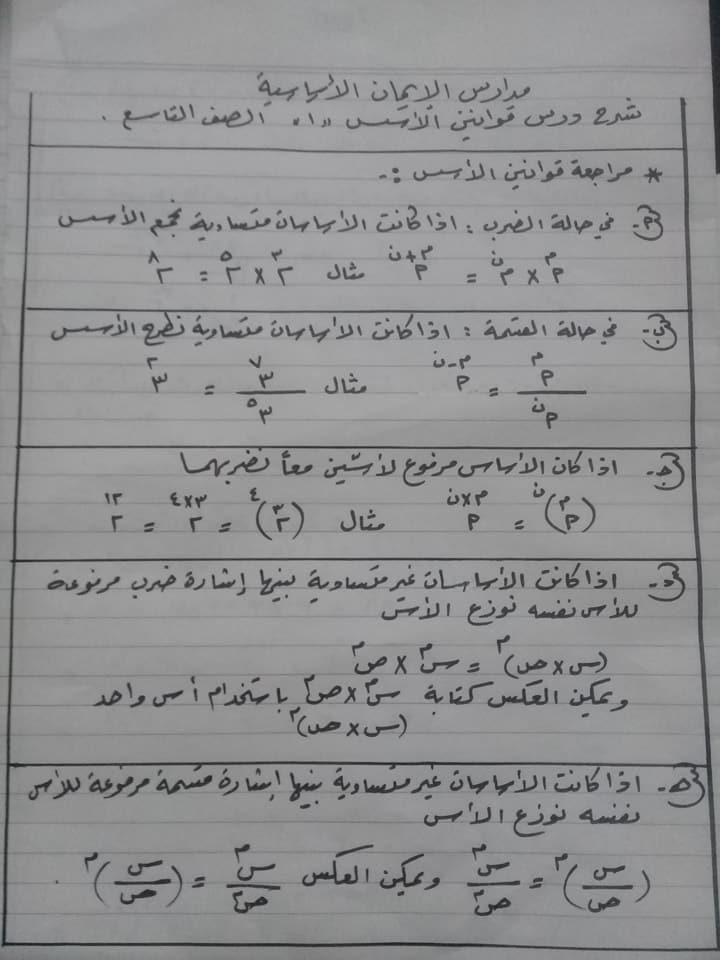 مدارس الإيمان الأساسية
شرح درس قوانين الأسس "١" الصف التاسع .
* مراجعة قوانين الأسس :-
أ- في حالة الضرب : اذا كانت الأساسات متساوية نجمع الأسس
أ^م × أ^ن = أ^(م+ن) مثال ٢^٣ × ٢^٥ = ٢^٨
ب- في حالة القسمة : اذا كانت الأساسات متساوية نطرح الأسس
أ^م / أ^ن = أ^(م-ن) مثال ٣^٧ / ٣^٥ = ٣^٢
ج- اذا كان الأساس مرفوع لأسّين معاً نضربهما
(أ^م)^ن = أ^(م×ن) مثال (٢^٣)^٤ = ٢^(٣×٤) = ٢^١٢
د- اذا كانت الأساسات غير متساوية بينها إشارة ضرب مرفوعة
للأس نفسه نوزع الأس
(س × ص)^م = س^م × ص^م
ويمكن العكس كتابة س^م × ص^م باستخدام أس واحد
(س × ص)^م
هـ- اذا كانت الأساسات غير متساوية بينها إشارة قسمة مرفوعة للأس
نفسه نوزع الأس
(س / ص)^م = س^م / ص^م ويمكن العكس س^م / ص^م = (س / ص)^م .